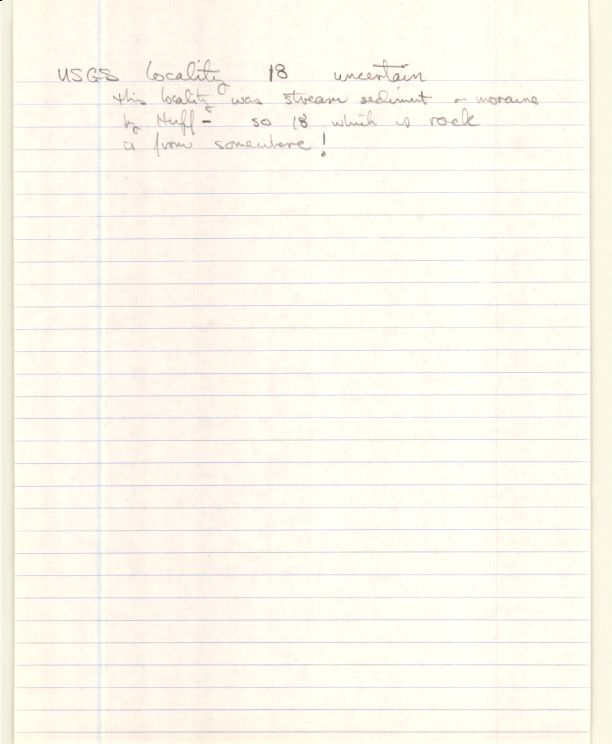 USGS locality 18 uncertain
this locality was stream sediment - moraine
by Huff - so 18 which is rock
is from somewhere!